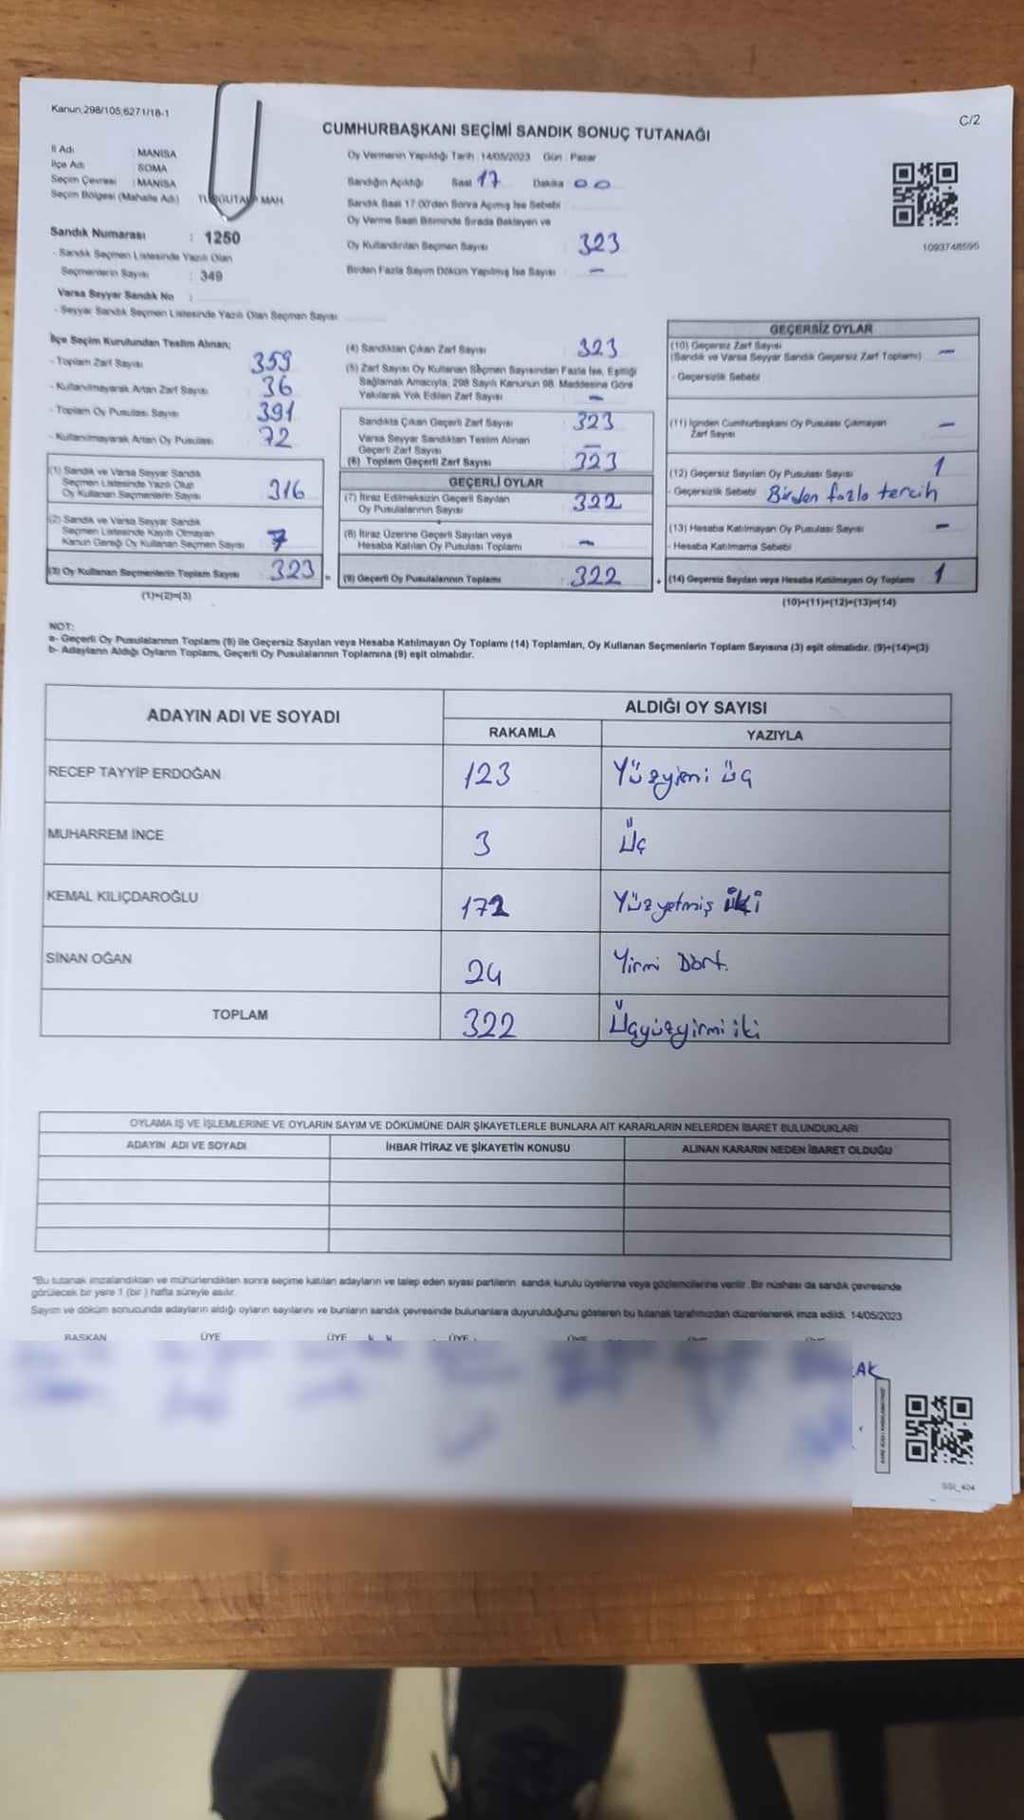 Kanun;298/105;6271/18-1
C/2
CUMHURBAŞKANI SEÇİMİ SANDIK SONUÇ TUTANAĞI
İl Adı : MANİSA
İlçe Adı : SOMA
Seçim Çevresi : MANİSA
Seçim Bölgesi (Mahalle Adı) MAH
Oy Vermenin Yapıldığı Tarih : 14/05/2023 Gün : Pazar
Sandığın Açıldığı Saat 17 Dakika 00
Sandık Saat 17:00'den Sonra Açılmış İse Sebebi
Oy Verme Saati Bitiminde Sırada Bekleyen ve
Oy Kullandırılan Seçmen Sayısı 323
Birden Fazla Sayım Döküm Yapılmış İse Sayısı –
1093748595
Sandık Numarası : 1250
- Sandık Seçmen Listesinde Yazılı Olan
Seçmenlerin Sayısı : 349
Varsa Seyyar Sandık No :
- Seyyar Sandık Seçmen Listesinde Yazılı Olan Seçmen Sayısı
İlçe Seçim Kurulundan Teslim Alınan;
- Toplam Zarf Sayısı 359
- Kullanılmayarak Artan Zarf Sayısı 36
- Toplam Oy Pusulası Sayısı 391
- Kullanılmayarak Artan Oy Pusulası 72
(1) Sandık ve Varsa Seyyar Sandık
Seçmen Listesinde Yazılı Olup
Oy Kullanan Seçmenlerin Sayısı 316
(2) Sandık ve Varsa Seyyar Sandık
Seçmen Listesinde Kayıtlı Olmayan
Kanun Gereği Oy Kullanan Seçmen Sayısı 7
(3) Oy Kullanan Seçmenlerin Toplam Sayısı 323
(1)+(2)=(3)
(4) Sandıktan Çıkan Zarf Sayısı 323
(5) Zarf Sayısı Oy Kullanan Seçmen Sayısından Fazla İse, Eşitliği
Sağlamak Amacıyla, 298 Sayılı Kanunun 98. Maddesine Göre
Yakılarak Yok Edilen Zarf Sayısı –
Sandıkta Çıkan Geçerli Zarf Sayısı 323
Varsa Seyyar Sandıktan Teslim Alınan
Geçerli Zarf Sayısı –
(6) Toplam Geçerli Zarf Sayısı 323
GEÇERLİ OYLAR
(7) İtiraz Edilmeksizin Geçerli Sayılan
Oy Pusulalarının Sayısı 322
(8) İtiraz Üzerine Geçerli Sayılan veya
Hesaba Katılan Oy Pusulası Toplamı –
(9) Geçerli Oy Pusulalarının Toplamı 322
GEÇERSİZ OYLAR
(10) Geçersiz Zarf Sayısı
(Sandık ve Varsa Seyyar Sandık Geçersiz Zarf Toplamı) –
- Geçersizlik Sebebi
(11) İçinden Cumhurbaşkanı Oy Pusulası Çıkmayan
Zarf Sayısı –
(12) Geçersiz Sayılan Oy Pusulası Sayısı 1
- Geçersizlik Sebebi Birden fazla tercih
(13) Hesaba Katılmayan Oy Pusulası Sayısı –
- Hesaba Katılmama Sebebi
(14) Geçersiz Sayılan veya Hesaba Katılmayan Oy Toplamı 1
(10)+(11)+(12)+(13)=(14)
NOT:
a- Geçerli Oy Pusulalarının Toplamı (9) ile Geçersiz Sayılan veya Hesaba Katılmayan Oy Toplamı (14) Toplamları, Oy Kullanan Seçmenlerin Toplam Sayısına (3) eşit olmalıdır. (9)+(14)=(3)
b- Adayların Aldığı Oyların Toplamı, Geçerli Oy Pusulalarının Toplamına (9) eşit olmalıdır.
ADAYIN ADI VE SOYADI ALDIĞI OY SAYISI
RAKAMLA YAZIYLA
RECEP TAYYİP ERDOĞAN 123 Yüzyirmi üç
MUHARREM İNCE 3 Üç
KEMAL KILIÇDAROĞLU 172 Yüzyetmiş iki
SİNAN OĞAN 24 Yirmi Dört.
TOPLAM 322 Üçyüzyirmi iki
OYLAMA İŞ VE İŞLEMLERİNE VE OYLARIN SAYIM VE DÖKÜMÜNE DAİR ŞİKAYETLERLE BUNLARA AİT KARARLARIN NELERDEN İBARET BULUNDUKLARI
ADAYIN ADI VE SOYADI İHBAR İTİRAZ VE ŞİKAYETİN KONUSU ALINAN KARARIN NEDEN İBARET OLDUĞU
*Bu tutanak imzalandıktan ve mühürlendikten sonra seçime katılan adayların ve talep eden siyasi partilerin sandık kurulu üyelerine veya gözlemcilerine verilir. Bir nüshası da sandık çevresinde
görülecek bir yere 1 (bir) hafta süreyle asılır.
Sayım ve döküm sonucunda adayların aldığı oyların sayılarını ve bunların sandık çevresinde bulunanlara duyurulduğunu gösteren bu tutanak tarafımızdan düzenlenerek imza edildi. 14/05/2023
BAŞKAN ÜYE ÜYE ÜYE
AK